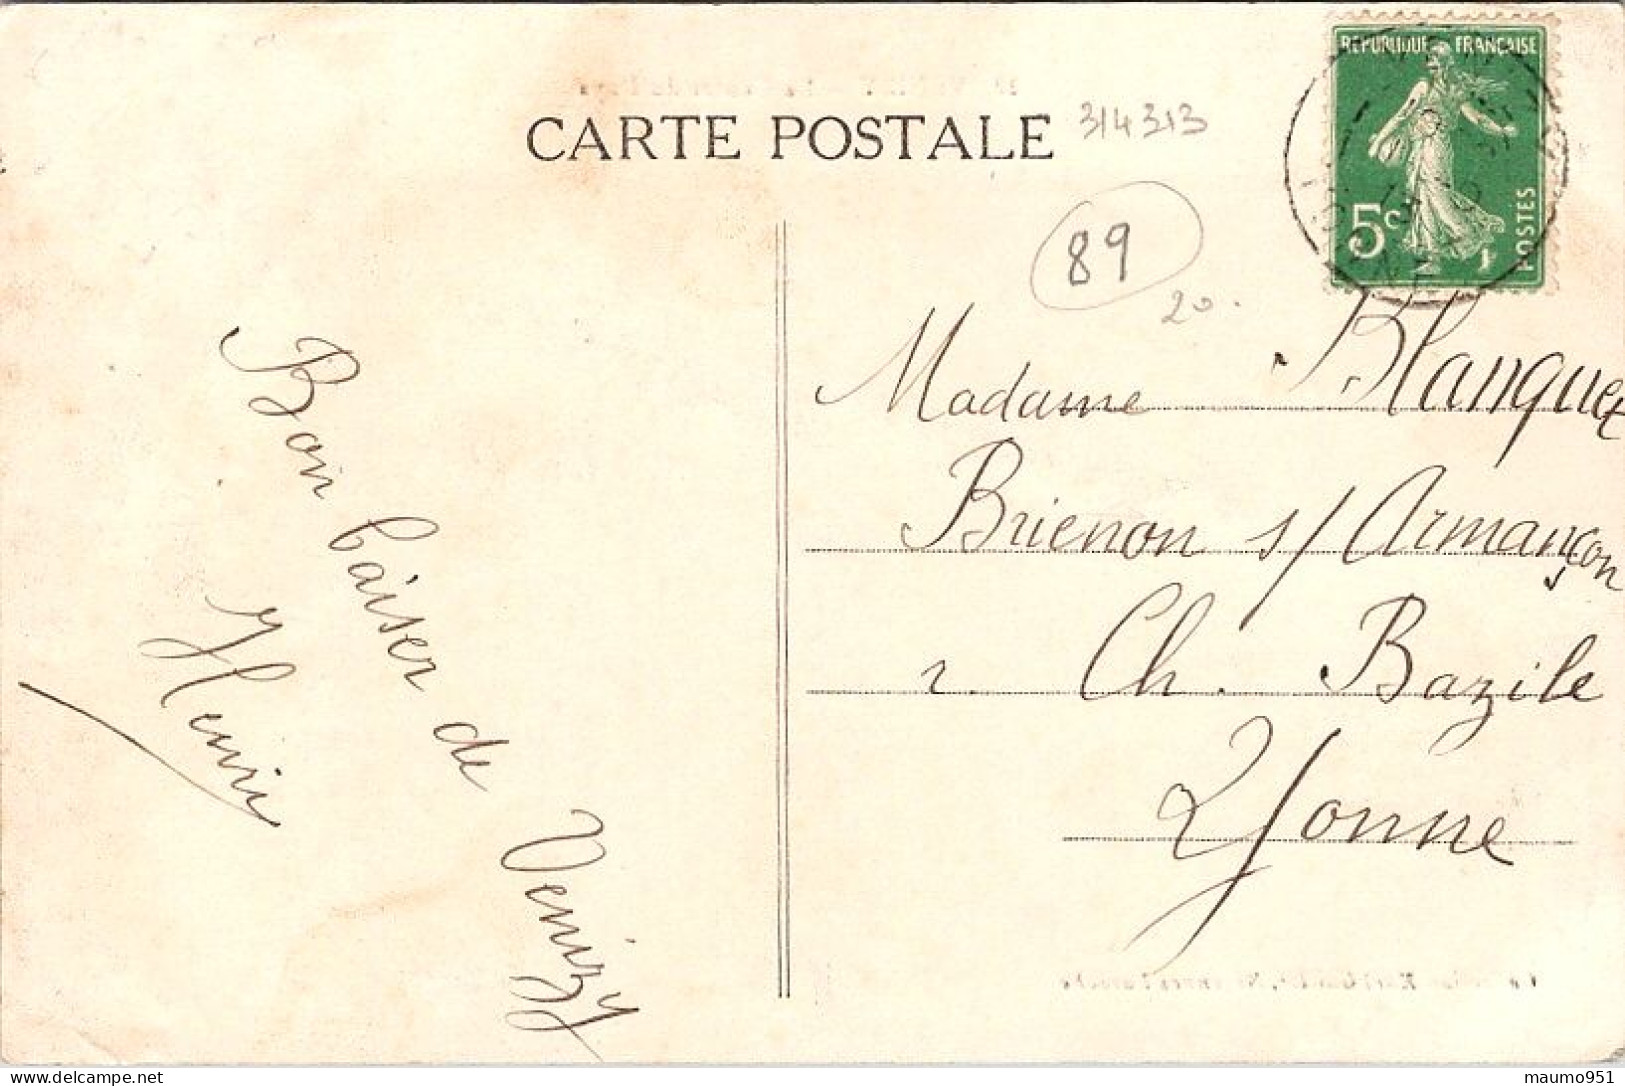 CARTE POSTALE
314313
REPUBLIQUE FRANÇAISE
5c
POSTES
89
20.
Madame Blanquet
Brienon s/ Armançon
r. Ch. Bazile
Yonne
Bon baiser de Venizy
Henri
delcampe.net
maumo951